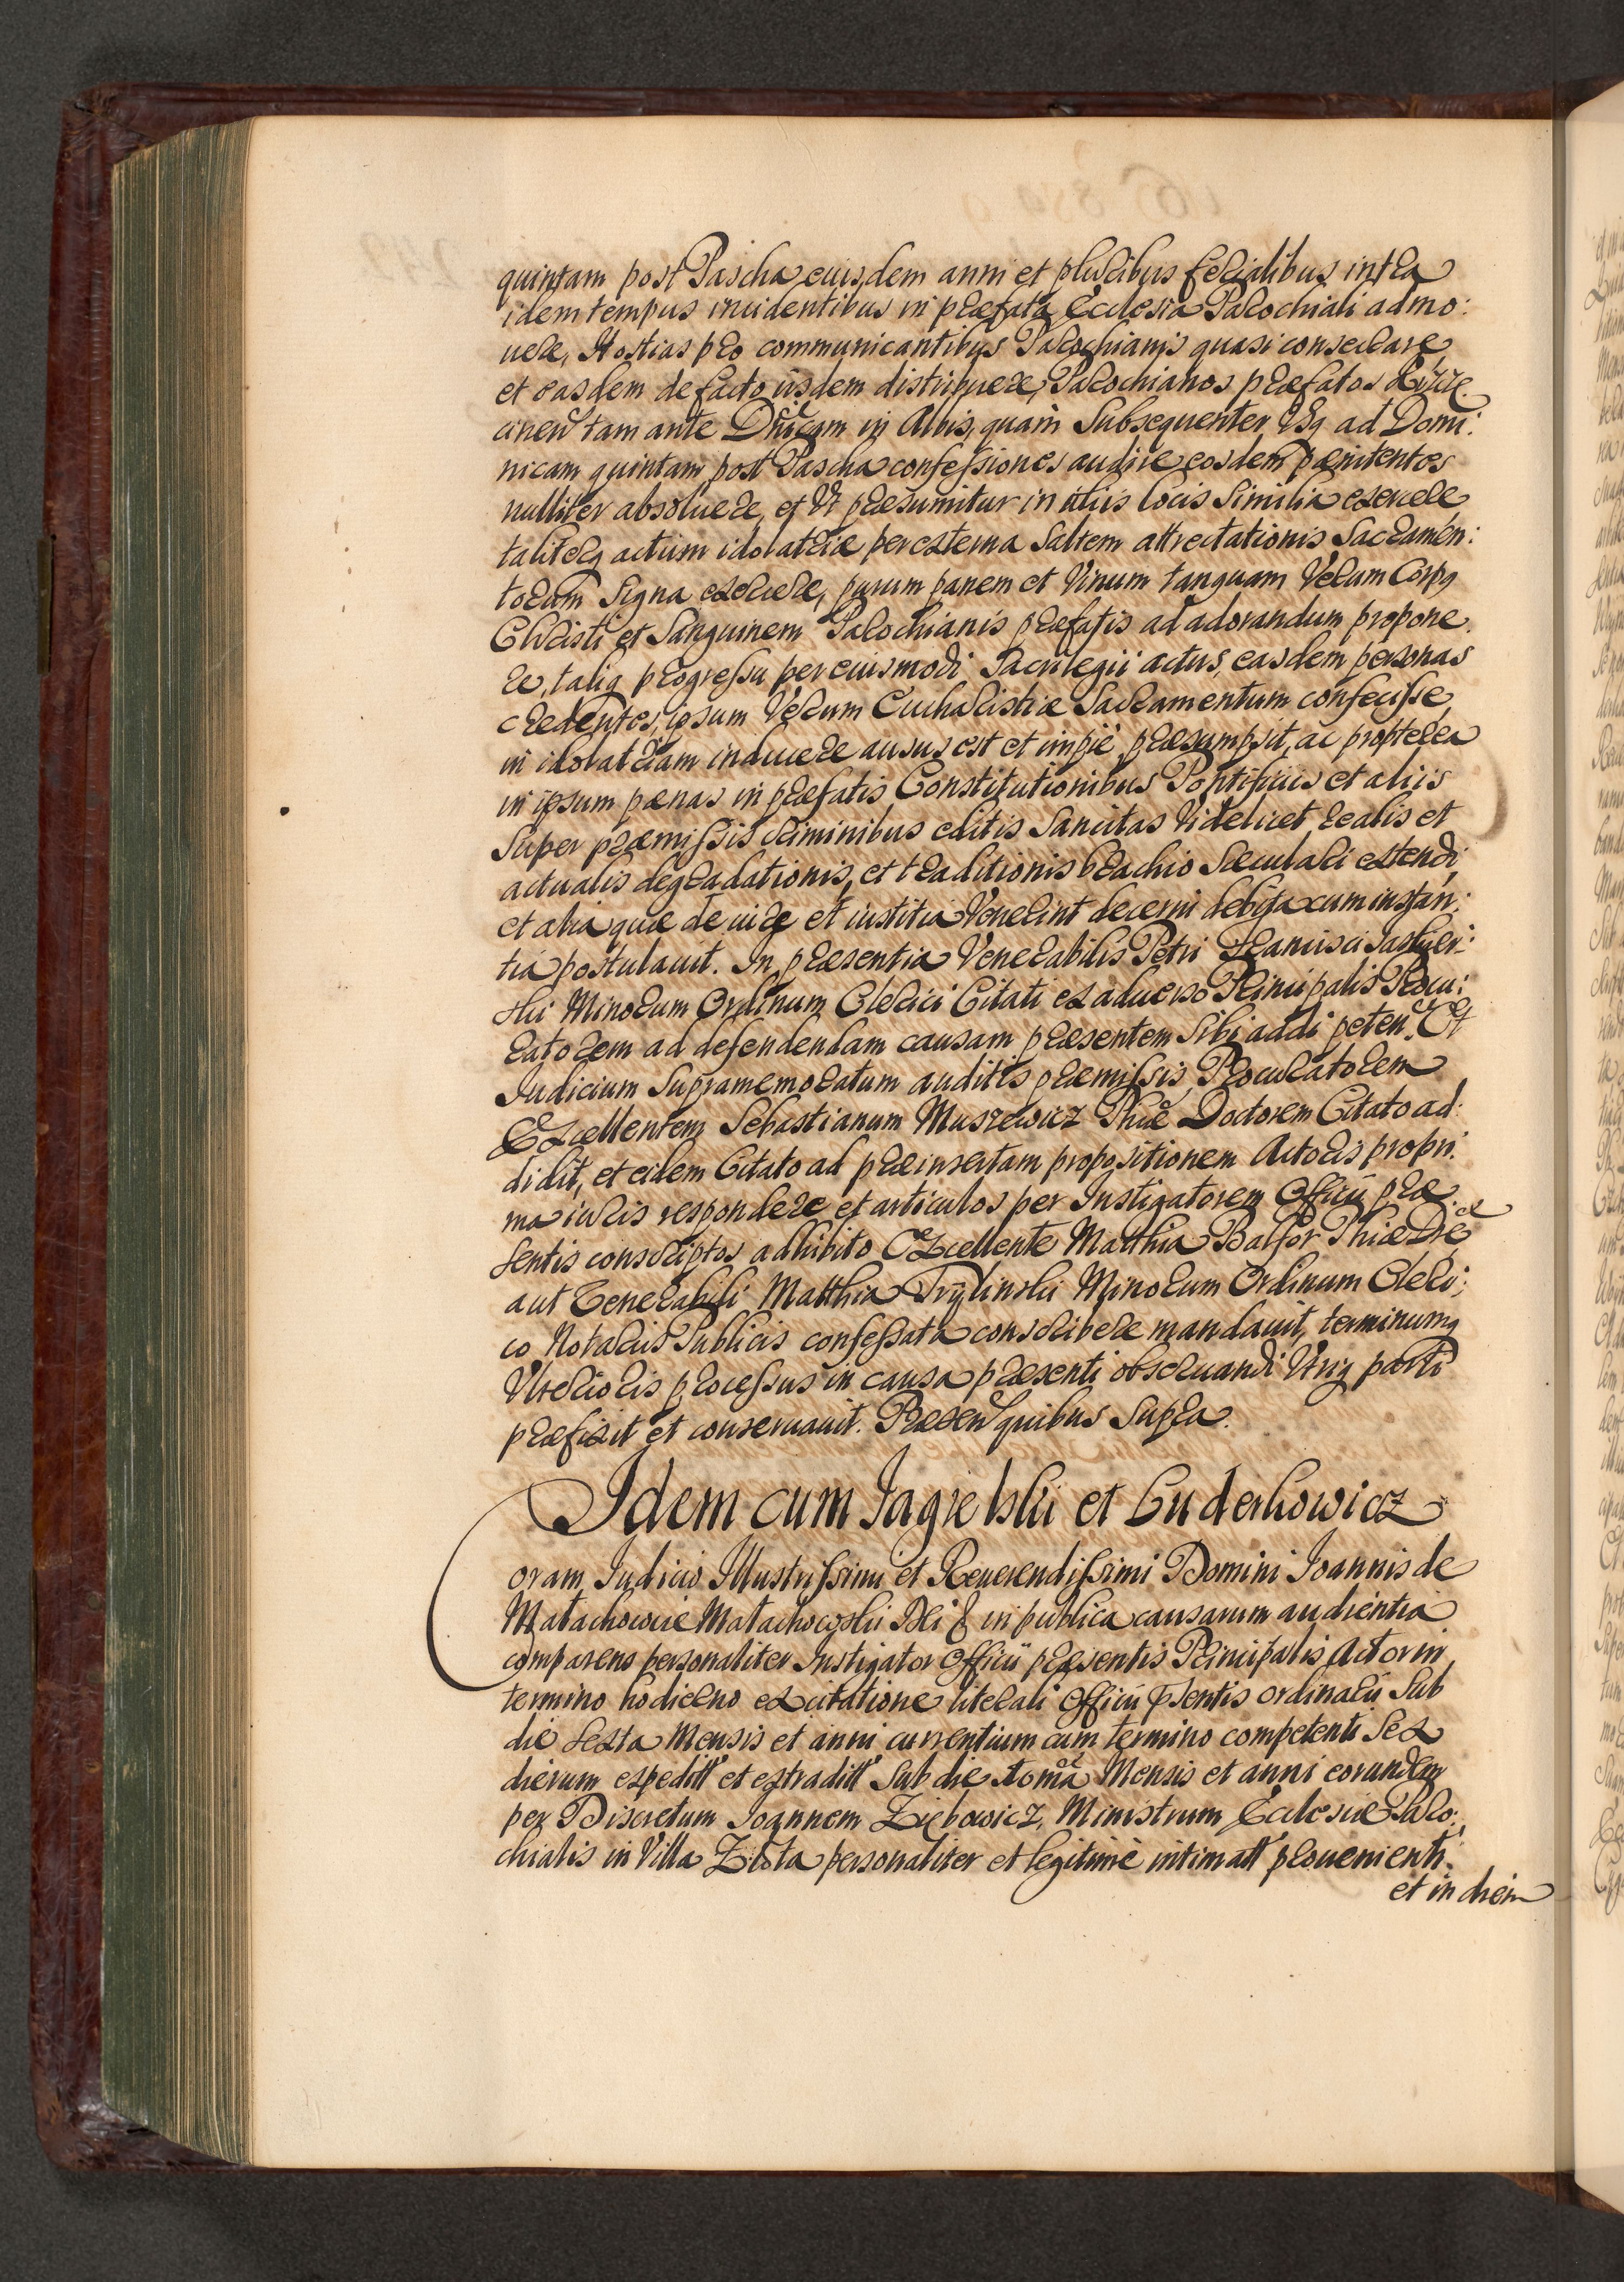 quintam post Pascha eiusdem anni et pluribus ferialibus intra
idem tempus incidentibus in præfata Ecclesia Parochiali admo:
uere, Hostias pro communicantibus Parochianis quasi consecrare
et easdem de facto iisdem distribuere, Parochianos præfatos
tam ante Dnicam in Albis, quam Subsequenter Vsq ad Domi:
nicam quintam post Pascha confessiones audire eosdem pænitentes
nulliter absoluere, et Vt præsumitur in aliis locis Similia exercere
taliterq actum idolatriæ per externa Saltem attrectationis Sacramen:
torum Signa exercere, purum panem et Vinum tanquam Verum Corpq
Christi et Sanguinem Parochianis præfatis ad adorandum propone
re, taliq progressu per eiusmodi Sacrilegii actus, easdem personas
credentes, ipsum Verum Eucharistiæ Sacramentum confecisse
in idolatriam inducere ausus est et impiè præsumpsit, ac propterea
in ipsum pænas in præfatis Constitutionibus Pontificiis et aliis
Super præmissis criminibus editis Sancitas Videlicet realis et
actualis degradationis, et traditionis brachio Sæculari extendi
et alia quæ de iure et iustitia Venerint decerni debita cum instan:
tia postulauit. In præsentia Venerabilis Petri Francisci
Minorum Ordinum Clerici Citati ex aduerso Principalis Procu:
ratorem ad defendendam causam præsentem Sibi addi peten. Et
Iudicium Supramemoratum auditis præmissis Procuratorem
Excellentem Sebastianum Muszewicz Phiæ Doctorem Citato ad:
didit, et eidem Citato ad præinsertam propositionem Actoris propri:
ma iuris respondere et articulos per Instigatorem Officii præ
sentis conscriptos adhibito Excellente Matthia Balfor Phiæ Dre
aut Venerabili Matthia Trylinski Minorum Ordinum Cleri:
co Notariis Publicis confessata conscribere mandauit, terminumq
Vlterioris processus in causa præsenti obseruandi Vtriq parti
præfixit et conseruauit. Præsen quibus Supra.
Idem cum Jagielski et Cuderhowicz
oram Iudicio Illustrissimi et Reuerendissimi Domini Ioannis de
Małachowice Małachowski Dei & in publica causarum audientia
comparens personaliter Instigator Officii præsentis Principalis Actor in
termino hodierno ex citatione literali Officii psentis ordinarii Sub
die sexta Mensis et anni currentium cum termino competenti Sex
dierum expeditt et extraditt Sub die Mensis et anni eorundem
per Discretum Ioannem Ziębowicz, Ministrum Ecclesiæ Paro:
chialis in Villa Złota personaliter et legitimè intimatt prouenienti
et in diem